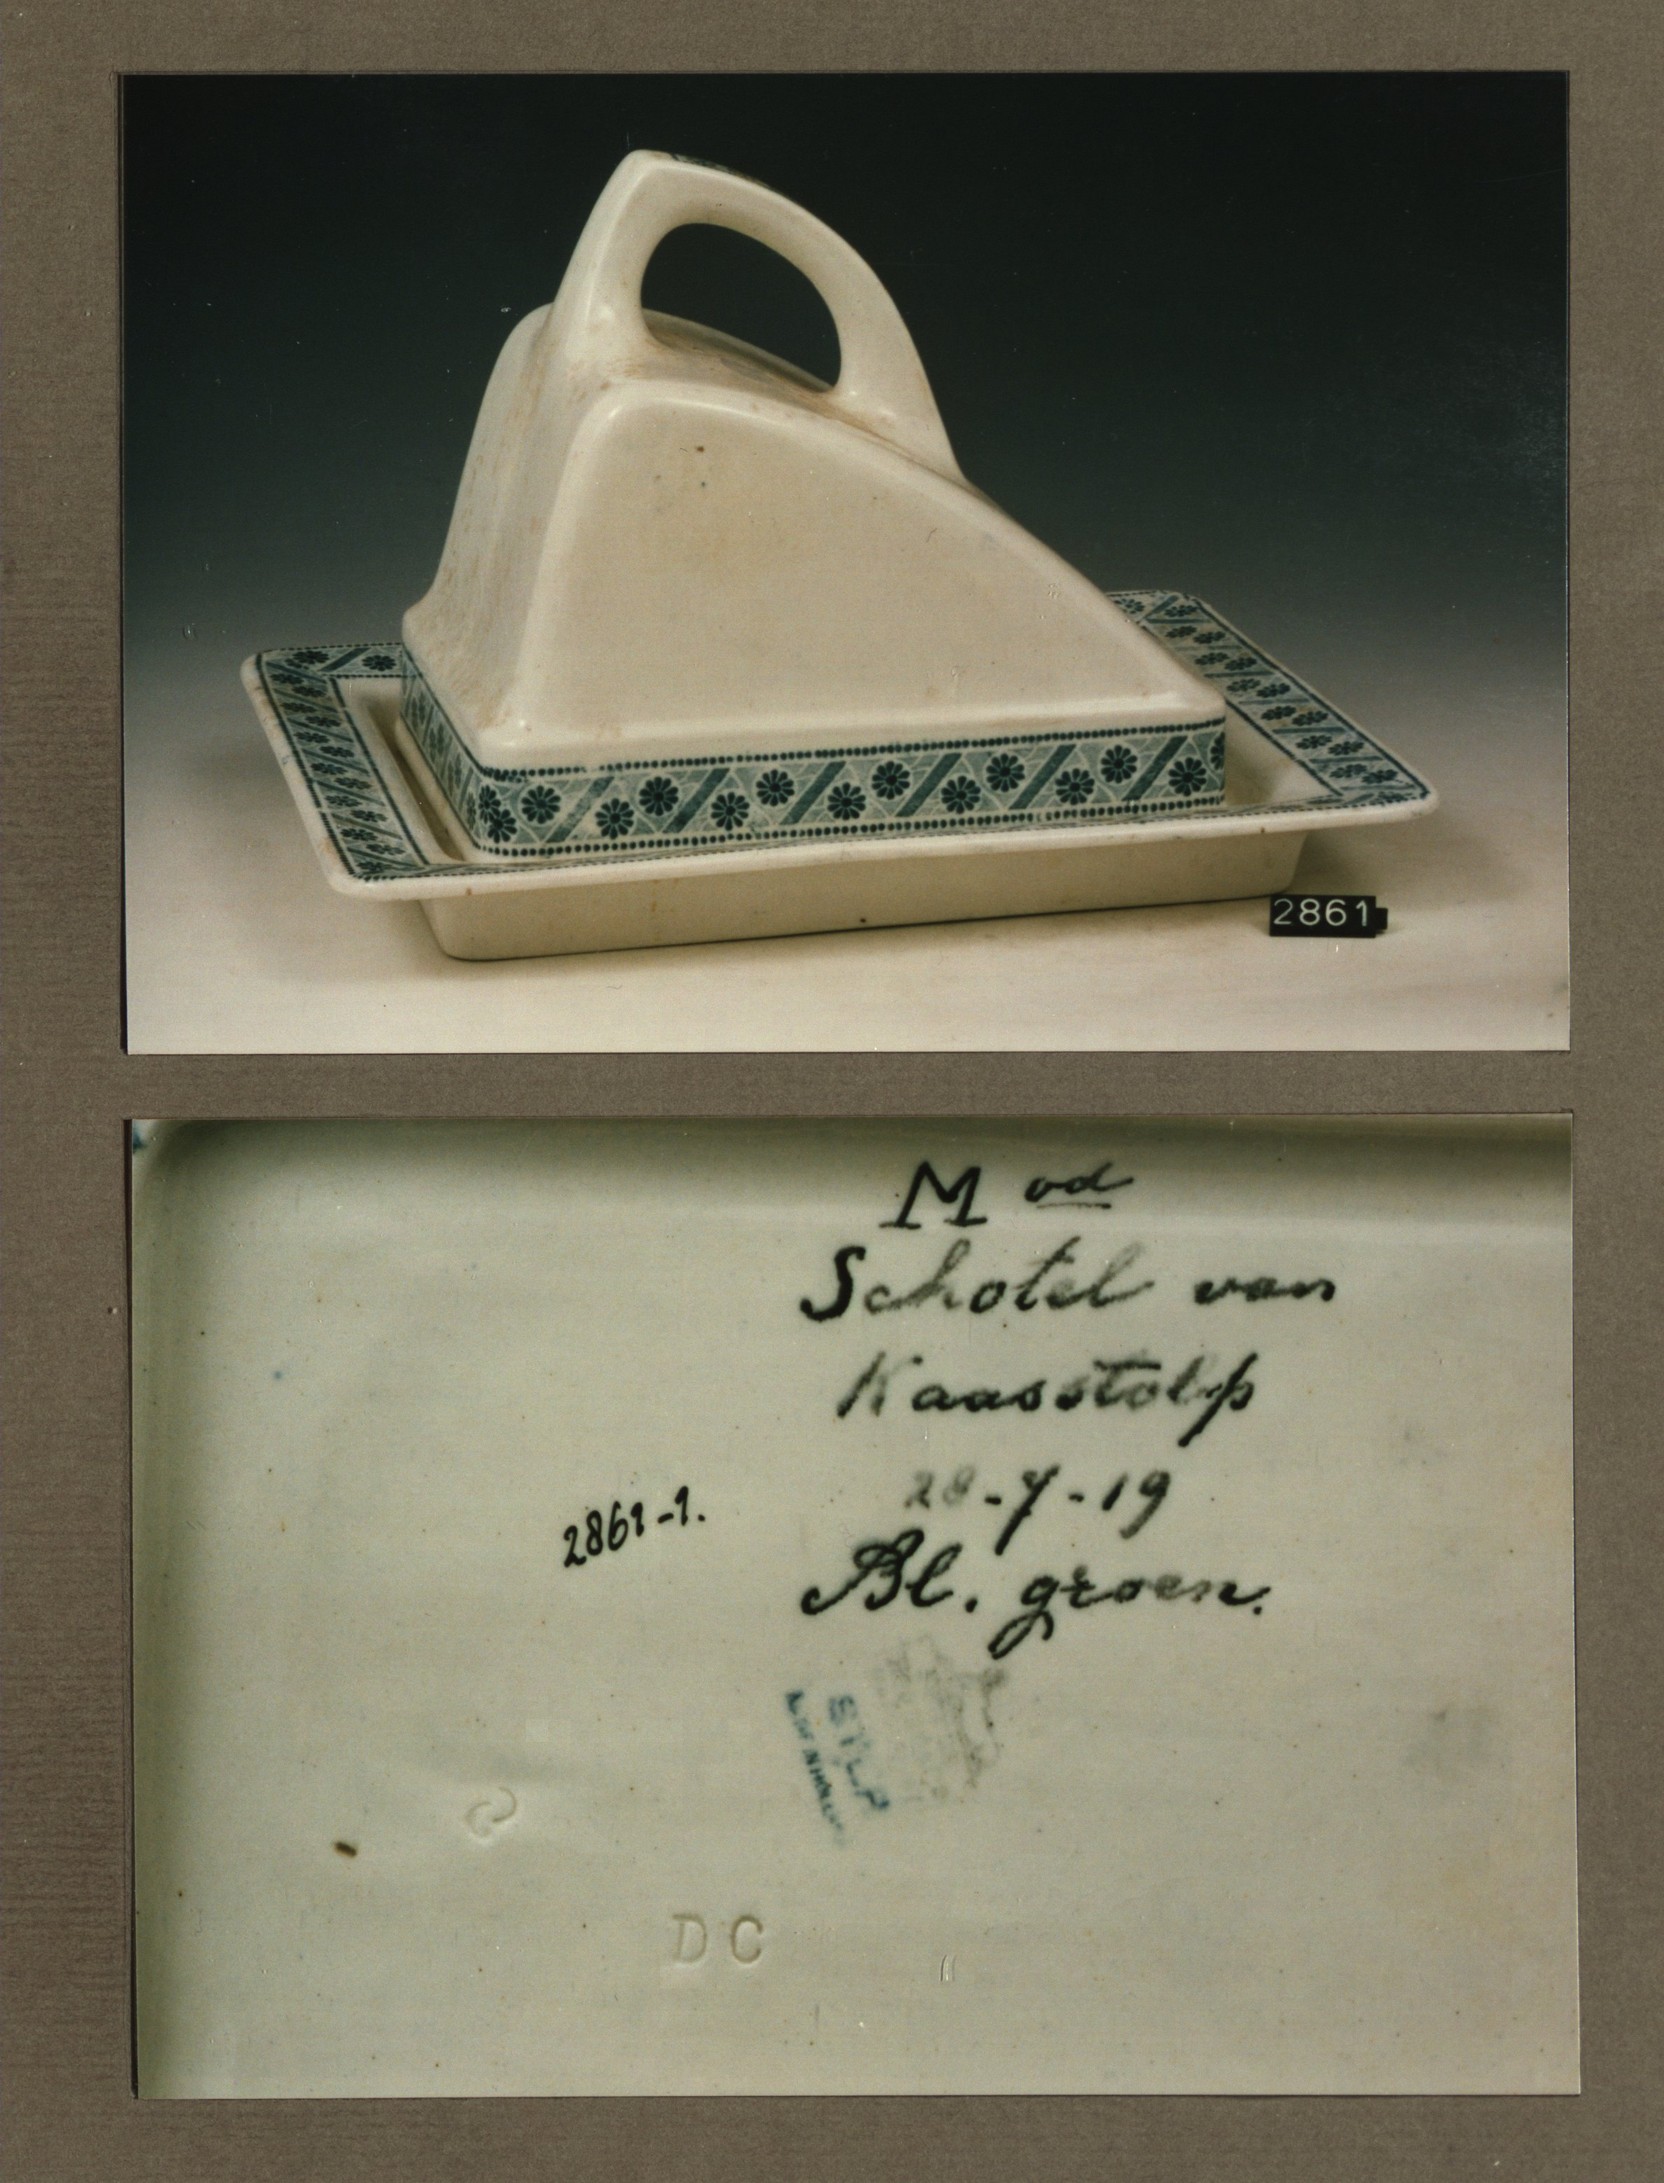 2861
M od
Schotel van
Kaasstolp
28-7-19
2861-1.
Bl. groen.
STLP
DC